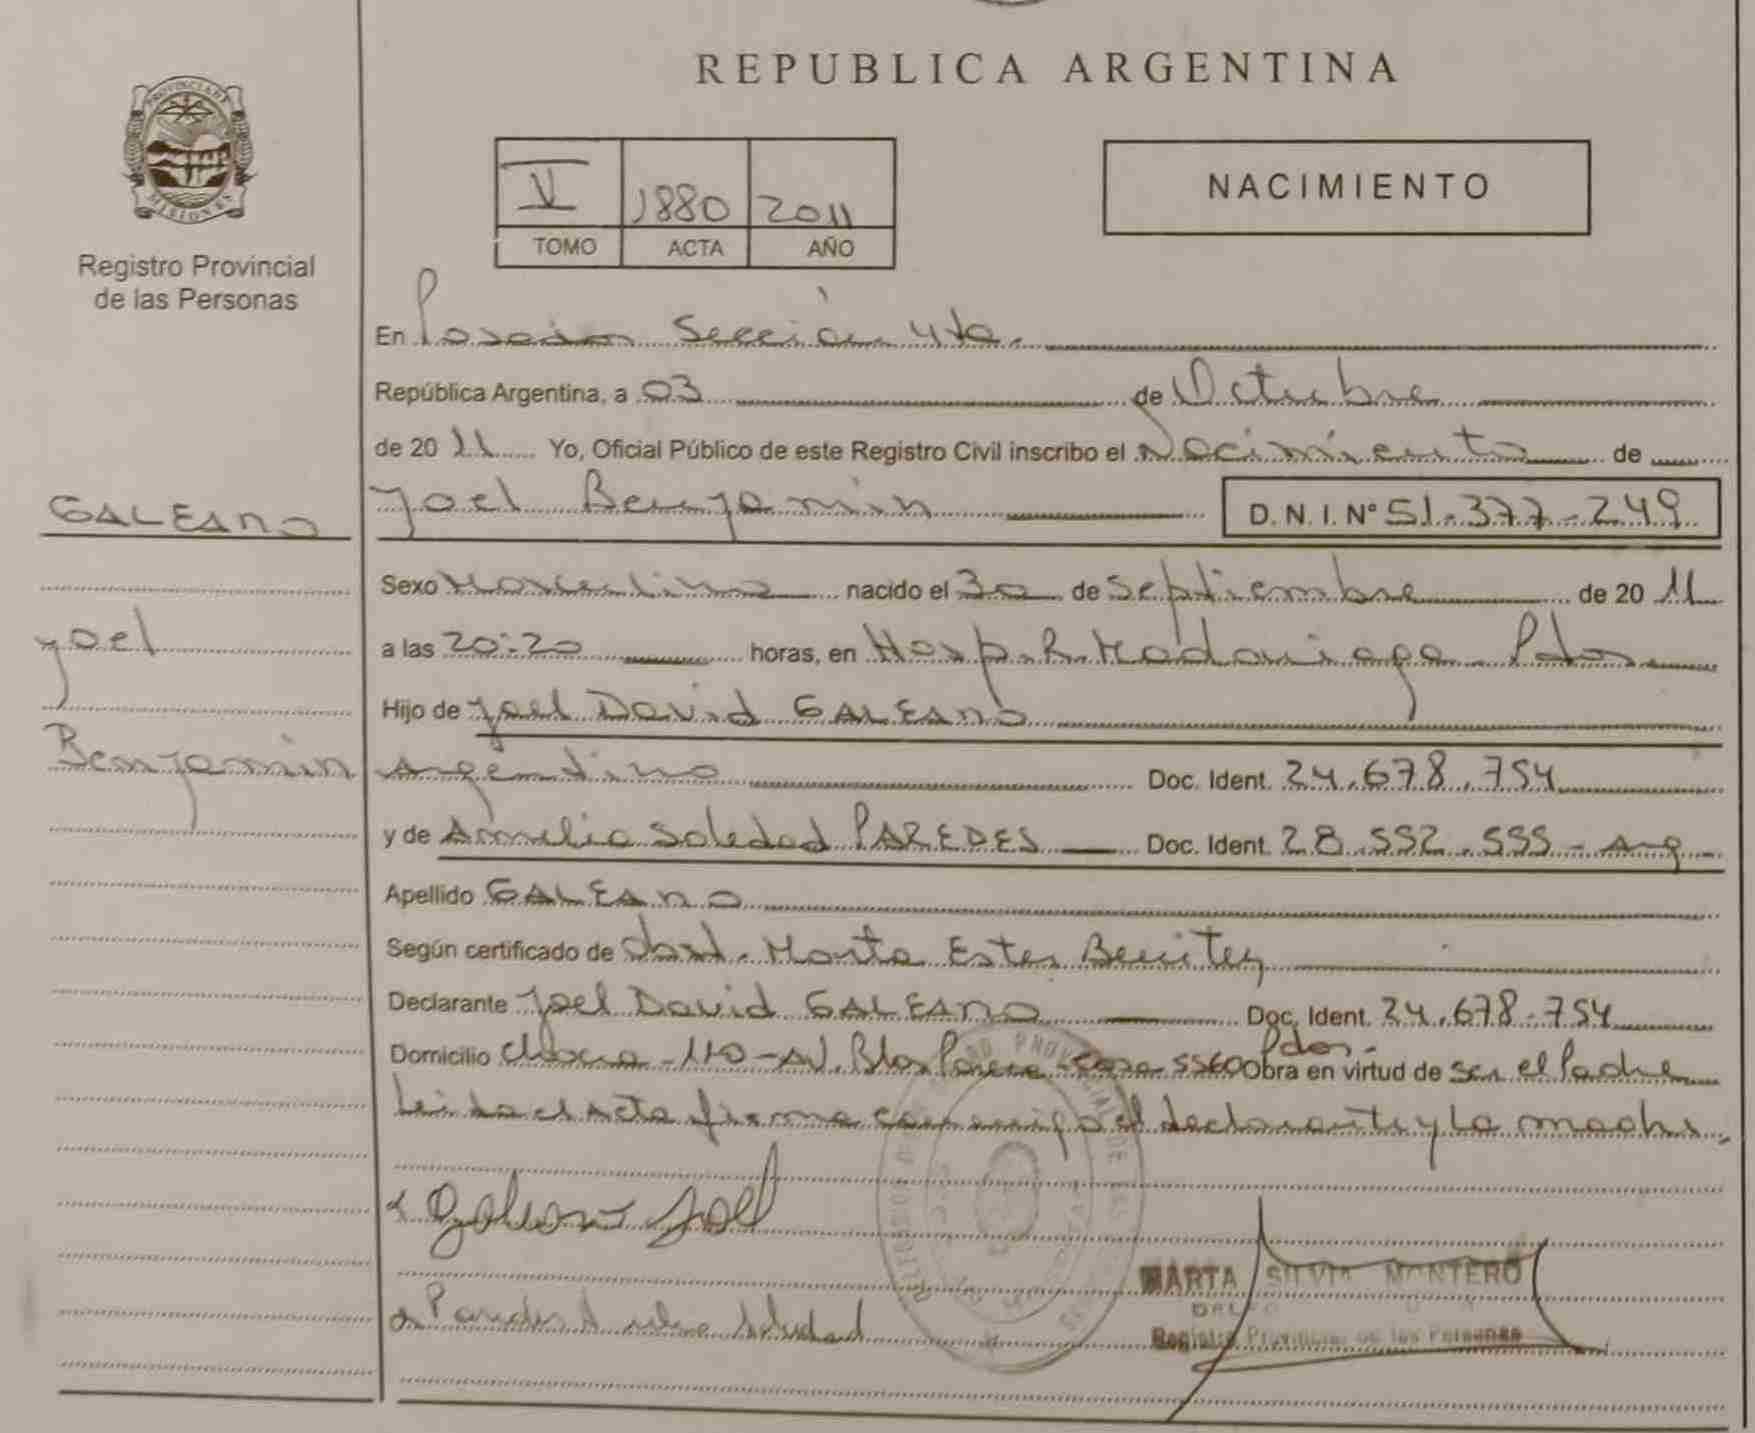 REPUBLICA ARGENTINA
PROVINCIA DE
MISIONES
Registro Provincial
de las Personas
V 1880 2011
TOMO ACTA AÑO
NACIMIENTO
En Posadas Sección 4ta.
República Argentina, a 03 de Octubre
de 2011 Yo, Oficial Público de este Registro Civil inscribo el Nacimiento de
GALEANO
Joel Benjamin D.N.I. Nº 51.377-249
Sexo Masculino nacido el 30 de Septiembre de 2011
Joel
a las 20:20 horas, en Hosp. R. Madariaga - Pdas
Hijo de Joel David GALEANO
Benjamin
Argentino Doc. Ident. 24.678.754
y de Amelia Soledad PAREDES Doc. Ident. 28.552.555 - Arg
Apellido GALEANO
Según certificado de Obst. Marta Ester Benitez
Declarante Joel David GALEANO Doc. Ident. 24.678-754
Domicilio Chacra - 110 - AV. Blas Parera - casa 5560 Pdas. Obra en virtud de ser el Padre
Leida el Acta firma conmigo el declarante y la madre.
Galeano Joel
MARTA SILVIA MONTERO
Paredes Soledad
Registro Provincial de las Personas